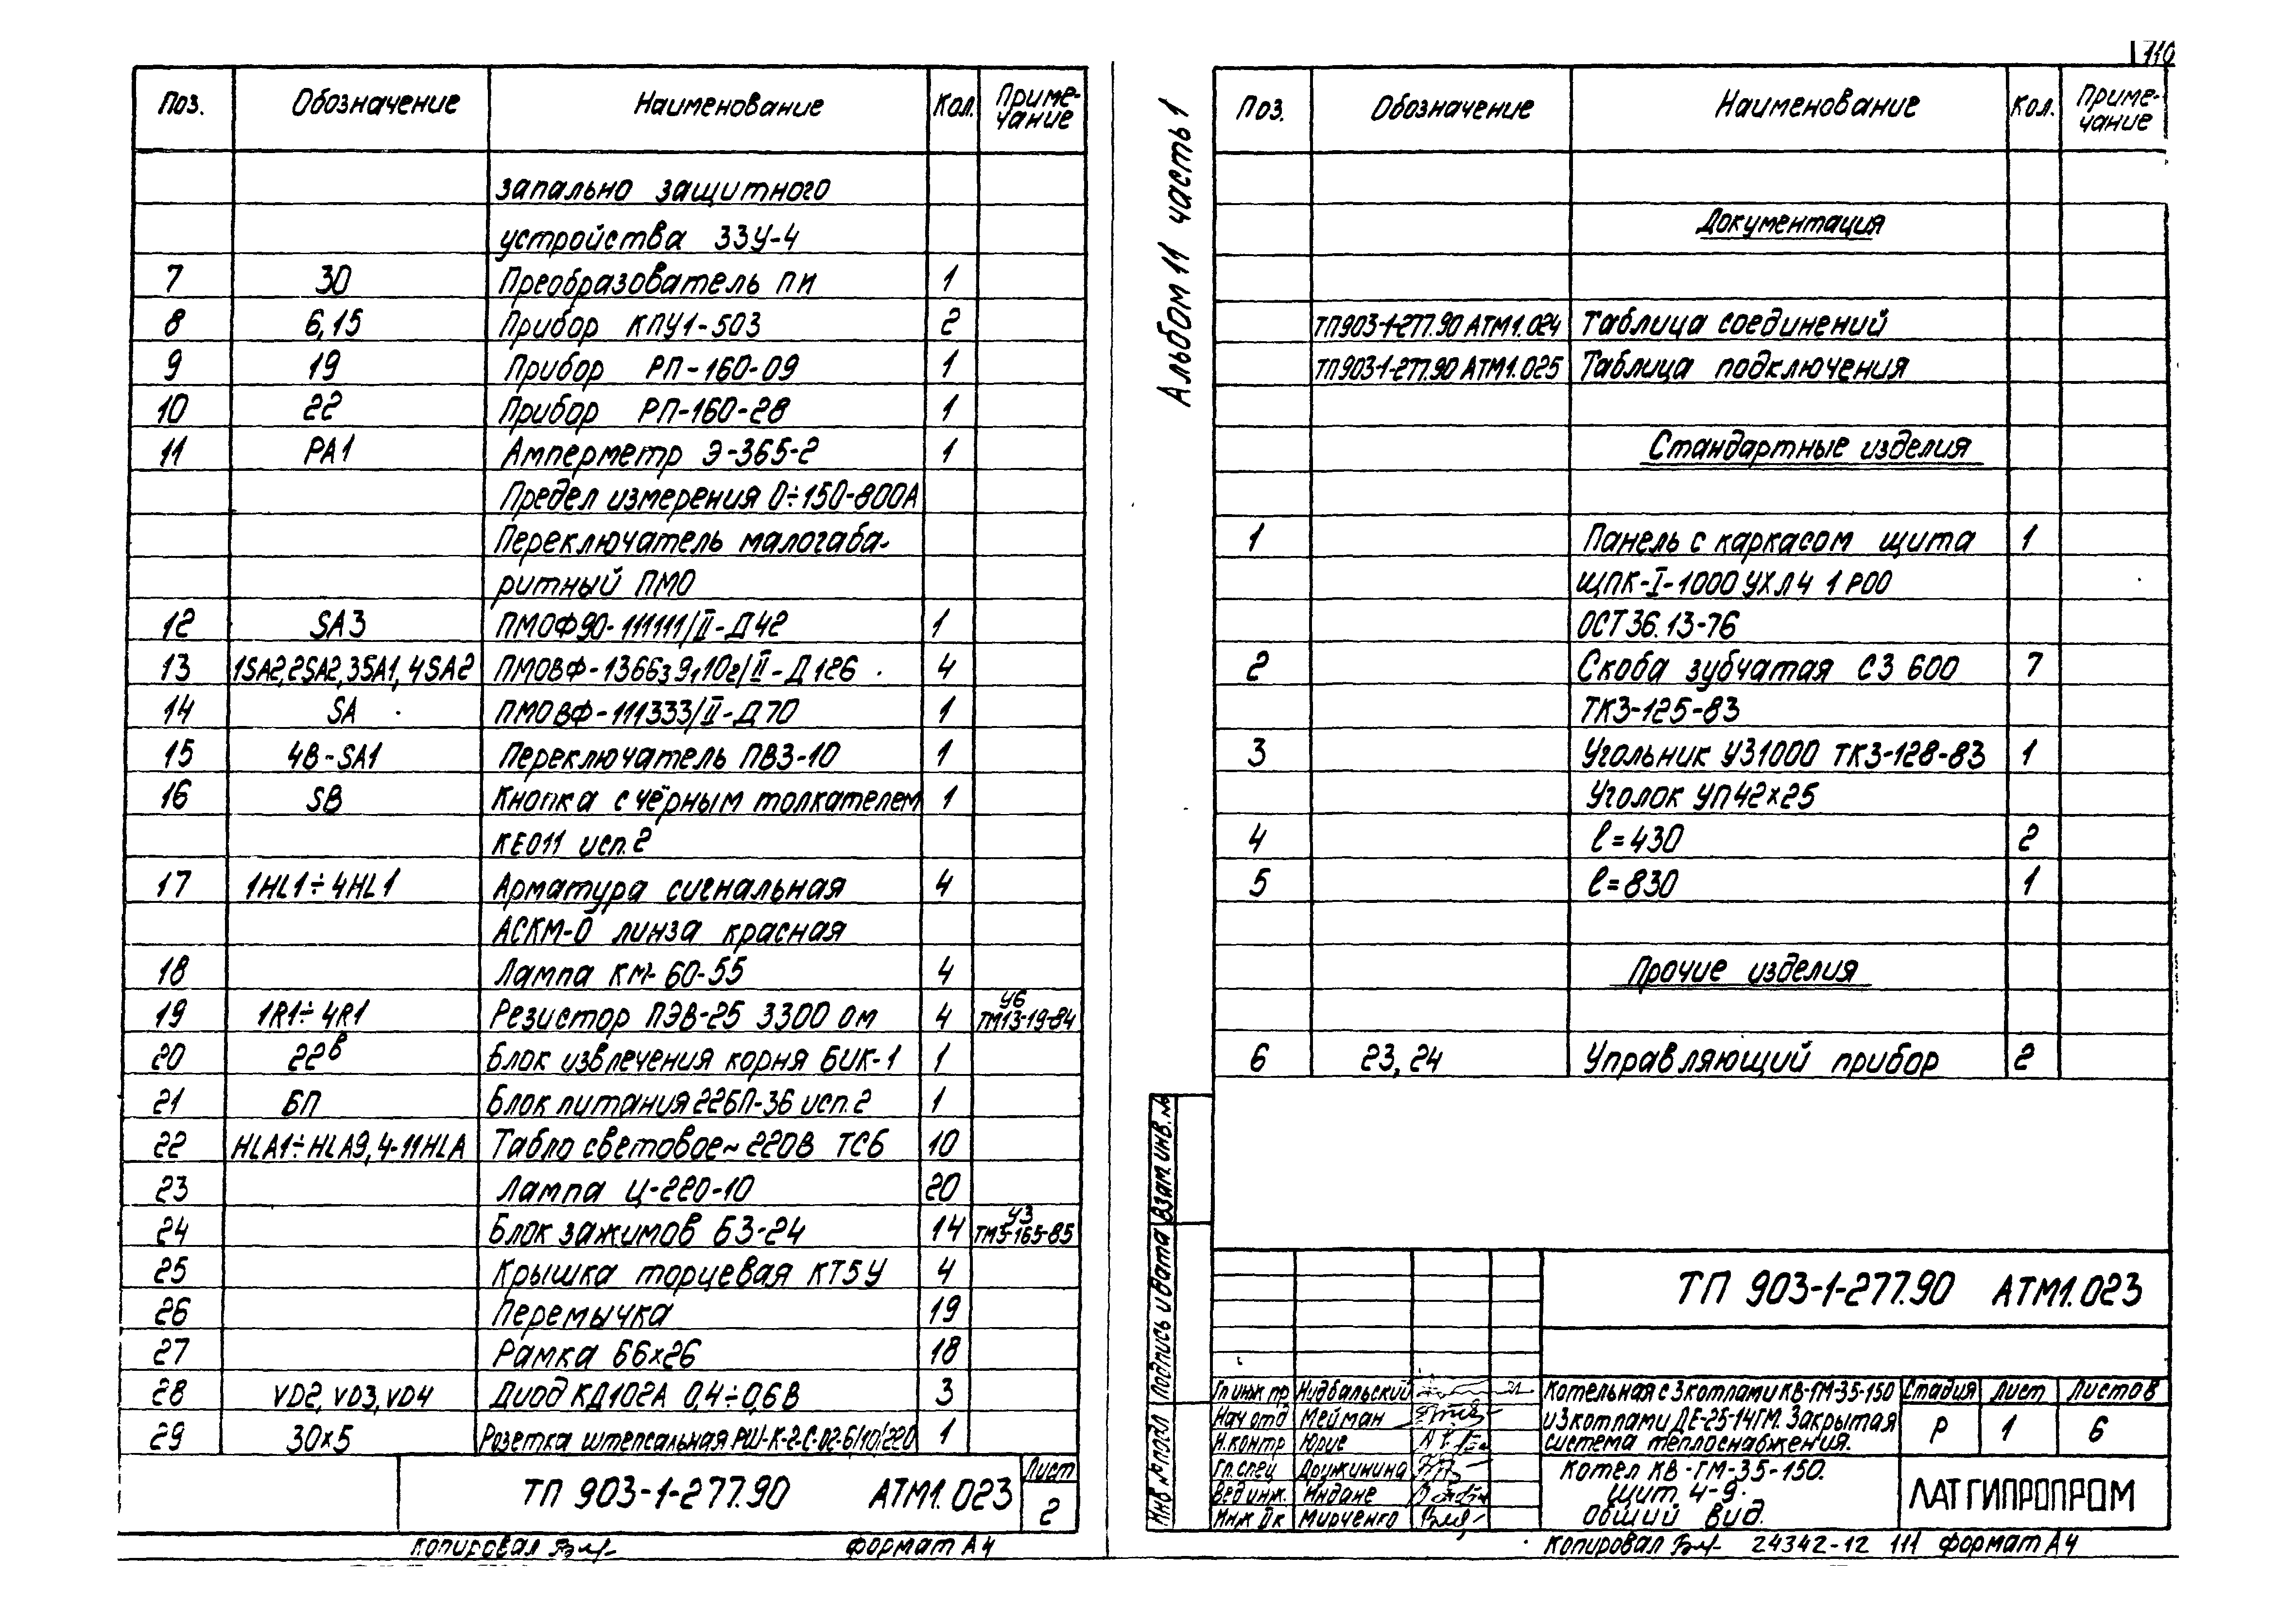 110
Поз. Обозначение Наименование Кол. Приме-чание
запально защитного
устройства ЗЗУ-4
7 30 Преобразователь ПИ 1
8 6,15 Прибор КПУ1-503 2
9 19 Прибор РП-160-09 1
10 22 Прибор РП-160-28 1
11 РА1 Амперметр Э-365-2 1
Предел измерения 0÷150-800А
Переключатель малогаба-
ритный ПМО
12 SA3 ПМОФ90-111111/II-Д42 1
13 1SA2,2SA2,3SA1,4SA2 ПМОВФ-1366з9,10г/II-Д126 4
14 SA ПМОВФ-111333/II-Д70 1
15 4В-SA1 Переключатель ПВ3-10 1
16 SB Кнопка с чёрным толкателем 1
КЕ011 исп.2
17 1HL1÷4HL1 Арматура сигнальная 4
АСКМ-О линза красная
18 Лампа КМ-60-55 4
19 1R1÷4R1 Резистор ПЭВ-25 3300 ом 4 У6 ТМ13-19-84
20 22в Блок извлечения корня БИК-1 1
21 БП Блок питания 22БП-36 исп.2 1
22 HLA1÷HLA9,4-11HLA Табло световое~220В ТСБ 10
23 Лампа Ц-220-10 20
24 Блок зажимов БЗ-24 14 У3 ТМ3-165-85
25 Крышка торцевая КТ5У 4
26 Перемычка 19
27 Рамка 66×26 18
28 VD2,VD3,VD4 Диод КД102А 0,4÷0,6В 3
29 30×5 Розетка штепсальная РШ-К-2-С-02-6/10/220 1
ТП 903-1-277.90 АТМ1.023
Лист
2
Копировал
формат А4
Альбом 11 часть 1
Поз. Обозначение Наименование Кол. Приме-чание
Документация
ТП903-1-277.90 АТМ1.024 Таблица соединений
ТП903-1-277.90 АТМ1.025 Таблица подключения
Стандартные изделия
1 Панель с каркасом щита 1
ЩПК-I-1000 УХЛ4 1Р00
ОСТ36.13-76
2 Скоба зубчатая СЗ 600 7
ТК3-125-83
3 Угольник УЗ1000 ТК3-128-83 1
Уголок УП42×25
4 l=430 2
5 l=830 1
Прочие изделия
6 23,24 Управляющий прибор 2
Взам.инв.№
Подпись и дата
Инв № подл
ТП 903-1-277.90 АТМ1.023
Гл инж пр Нидбальский
Нач отд Мейман
Н.контр Юрие
Гл.спец Дружинина
Вед инж. Индане
Инж IIк Мирченко
Котельная с 3 котлами КВ-ГМ-35-150
и 3 котлами ДЕ-25-14ГМ. Закрытая
система теплоснабжения.
Стадия Лист Листов
Р 1 6
Котел КВ-ГМ-35-150.
щит 4-9.
Общий вид.
ЛАТГИПРОПРОМ
Копировал
24342-12 111 формат А4